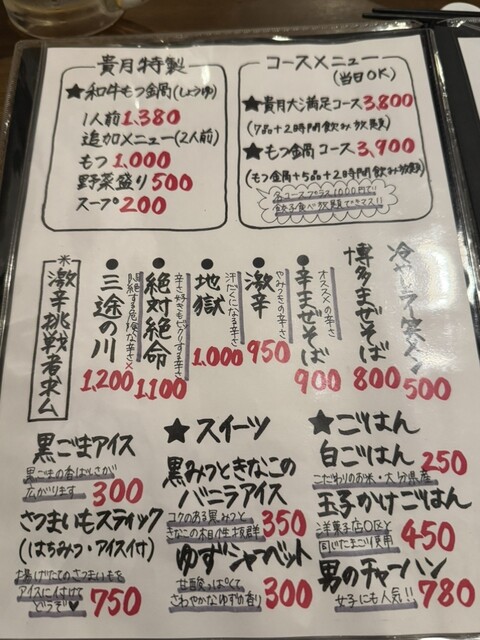 貴月特製
★和牛もつ金鍋(しょうゆ)
1人前1.380
追加メニュー(2人前)
もつ1.000
野菜盛り500
スープ200
コースメニュー
(当日OK)
★貴月大満足コース3,800
(7品+2時間飲み放題)
★もつ金鍋コース3,900
(もつ金鍋+5品+2時間飲み放題)
各コースプラス1000円で!!
冷やしラーメン
500
博多まぜそば
800
●辛まぜそば
オススメの辛さ
900
●激辛
やみつきの辛さ
950
●地獄
汗だくになる辛さ
1.000
●絶対絶命
辛さ好きもビックリする辛さ
1.100
●三途の川
1,200
※激辛挑戦者求ム
★ごはん
白ごはん250
こだわりのお米・大分県産
玉子かけごはん
洋菓子店OBと
同じたまご使用
450
男のチャーハン
女子にも人気!!
780
★スイーツ
黒みつときなこの
バニラアイス
コクのある黒みつと
きなこの相性抜群
350
ゆずシャーベット
甘酸っぱくて
さわやかなゆずの香り
300
黒ごまアイス
黒ごまの香ばしさが
広がります
300
さつまいもスティック
(はちみつ・アイス付)
揚げたてのさつまいもを
アイスに付けて
どうぞ♥
750